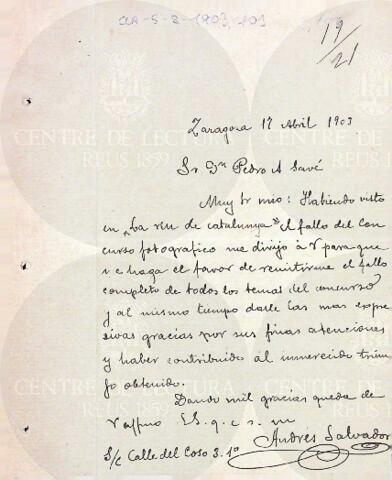 CLA-5-2-1903, 101
19/21
Zaragoza 17 Abril 1903
Sr Dn Pedro A Savé
Muy Sr mio: Habiendo visto
en "La veu de catalunya" el fallo del Con
curso fotografico me dirijo á V para que
me haga el favor de remitirme el fallo
completo de todos los temas del concurso
y al mismo tiempo darle las mas expre
sivas gracias por sus finas atenciones
y haber contribuido al inmerecido triun
fo obtenido.
Dando mil gracias queda de
V affmo S.S. q. c. s. m
Andrés Salvador
S/c Calle del Coso 3. 1º
CENTRE DE LECTURA
REUS 1859
CENTRE DE LECTURA
REUS 1859